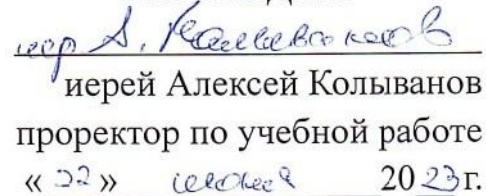 иер А.
иерей Алексей Колыванов
проректор по учебной работе
« 22 » июня 2023 г.